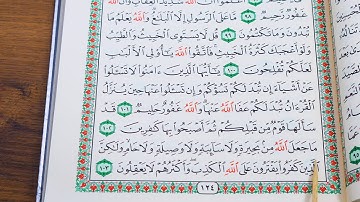 ٱعۡلَمُوٓاْ أَنَّ ٱللَّهَ شَدِيدُ ٱلۡعِقَابِ وَأَنَّ ٱللَّهَ
غَفُورٞ رَّحِيمٞ ٩٨ مَّا عَلَى ٱلرَّسُولِ إِلَّا ٱلۡبَلَٰغُۗ وَٱللَّهُ يَعۡلَمُ مَا
تُبۡدُونَ وَمَا تَكۡتُمُونَ ٩٩ قُل لَّا يَسۡتَوِي ٱلۡخَبِيثُ وَٱلطَّيِّبُ
وَلَوۡ أَعۡجَبَكَ كَثۡرَةُ ٱلۡخَبِيثِۚ فَٱتَّقُواْ ٱللَّهَ يَٰٓأُوْلِي ٱلۡأَلۡبَٰبِ
لَعَلَّكُمۡ تُفۡلِحُونَ ١٠٠ يَٰٓأَيُّهَا ٱلَّذِينَ ءَامَنُواْ لَا تَسۡـَٔلُواْ
عَنۡ أَشۡيَآءَ إِن تُبۡدَ لَكُمۡ تَسُؤۡكُمۡ وَإِن تَسۡـَٔلُواْ عَنۡهَا حِينَ يُنَزَّلُ
ٱلۡقُرۡءَانُ تُبۡدَ لَكُمۡ عَفَا ٱللَّهُ عَنۡهَاۗ وَٱللَّهُ غَفُورٌ حَلِيمٞ ١٠١ قَدۡ
سَأَلَهَا قَوۡمٞ مِّن قَبۡلِكُمۡ ثُمَّ أَصۡبَحُواْ بِهَا كَٰفِرِينَ ١٠٢
مَا جَعَلَ ٱللَّهُ مِنۢ بَحِيرَةٖ وَلَا سَآئِبَةٖ وَلَا وَصِيلَةٖ وَلَا حَامٖ وَلَٰكِنَّ
ٱلَّذِينَ كَفَرُواْ يَفۡتَرُونَ عَلَى ٱللَّهِ ٱلۡكَذِبَۖ وَأَكۡثَرُهُمۡ لَا يَعۡقِلُونَ ١٠٣
١٢٤